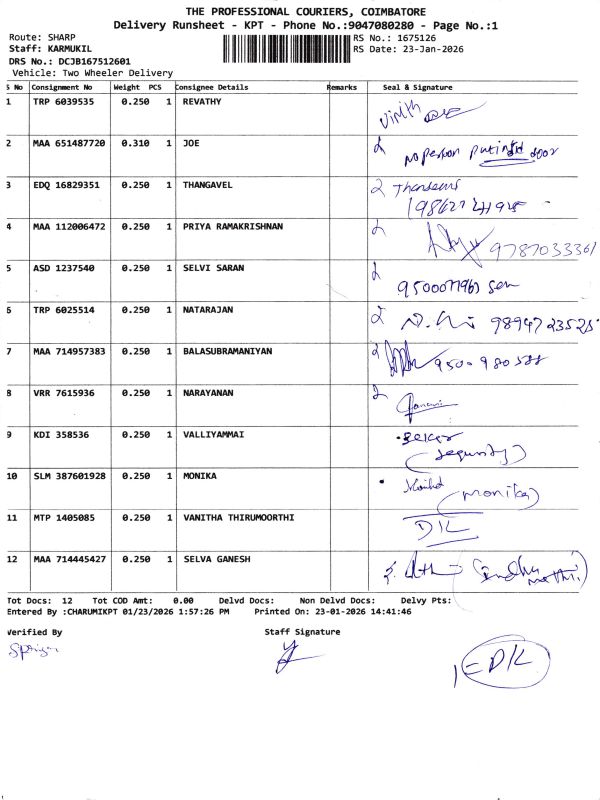 THE PROFESSIONAL COURIERS, COIMBATORE
Delivery Runsheet - KPT - Phone No.:9047080280 - Page No.:1
Route: SHARP RS No.: 1675126
Staff: KARMUKIL RS Date: 23-Jan-2026
DRS No.: DCJB167512601
Vehicle: Two Wheeler Delivery
S No Consignment No Weight PCS Consignee Details Remarks Seal & Signature
1 TRP 6039535 0.250 1 REVATHY
2 MAA 651487720 0.310 1 JOE No person door
3 EDQ 16829351 0.250 1 THANGAVEL
4 MAA 112006472 0.250 1 PRIYA RAMAKRISHNAN
5 ASD 1237540 0.250 1 SELVI SARAN
6 TRP 6025514 0.250 1 NATARAJAN
7 MAA 714957383 0.250 1 BALASUBRAMANIYAN
8 VRR 7615936 0.250 1 NARAYANAN
9 KDI 358536 0.250 1 VALLIYAMMAI
10 SLM 387601928 0.250 1 MONIKA (monika)
11 MTP 1405085 0.250 1 VANITHA THIRUMOORTHI D/L
12 MAA 714445427 0.250 1 SELVA GANESH
Tot Docs: 12 Tot COD Amt: 0.00 Delvd Docs: Non Delvd Docs: Delvy Pts:
Entered By :CHARUMIKPT 01/23/2026 1:57:26 PM Printed On: 23-01-2026 14:41:46
Verified By Staff Signature
1=D/L